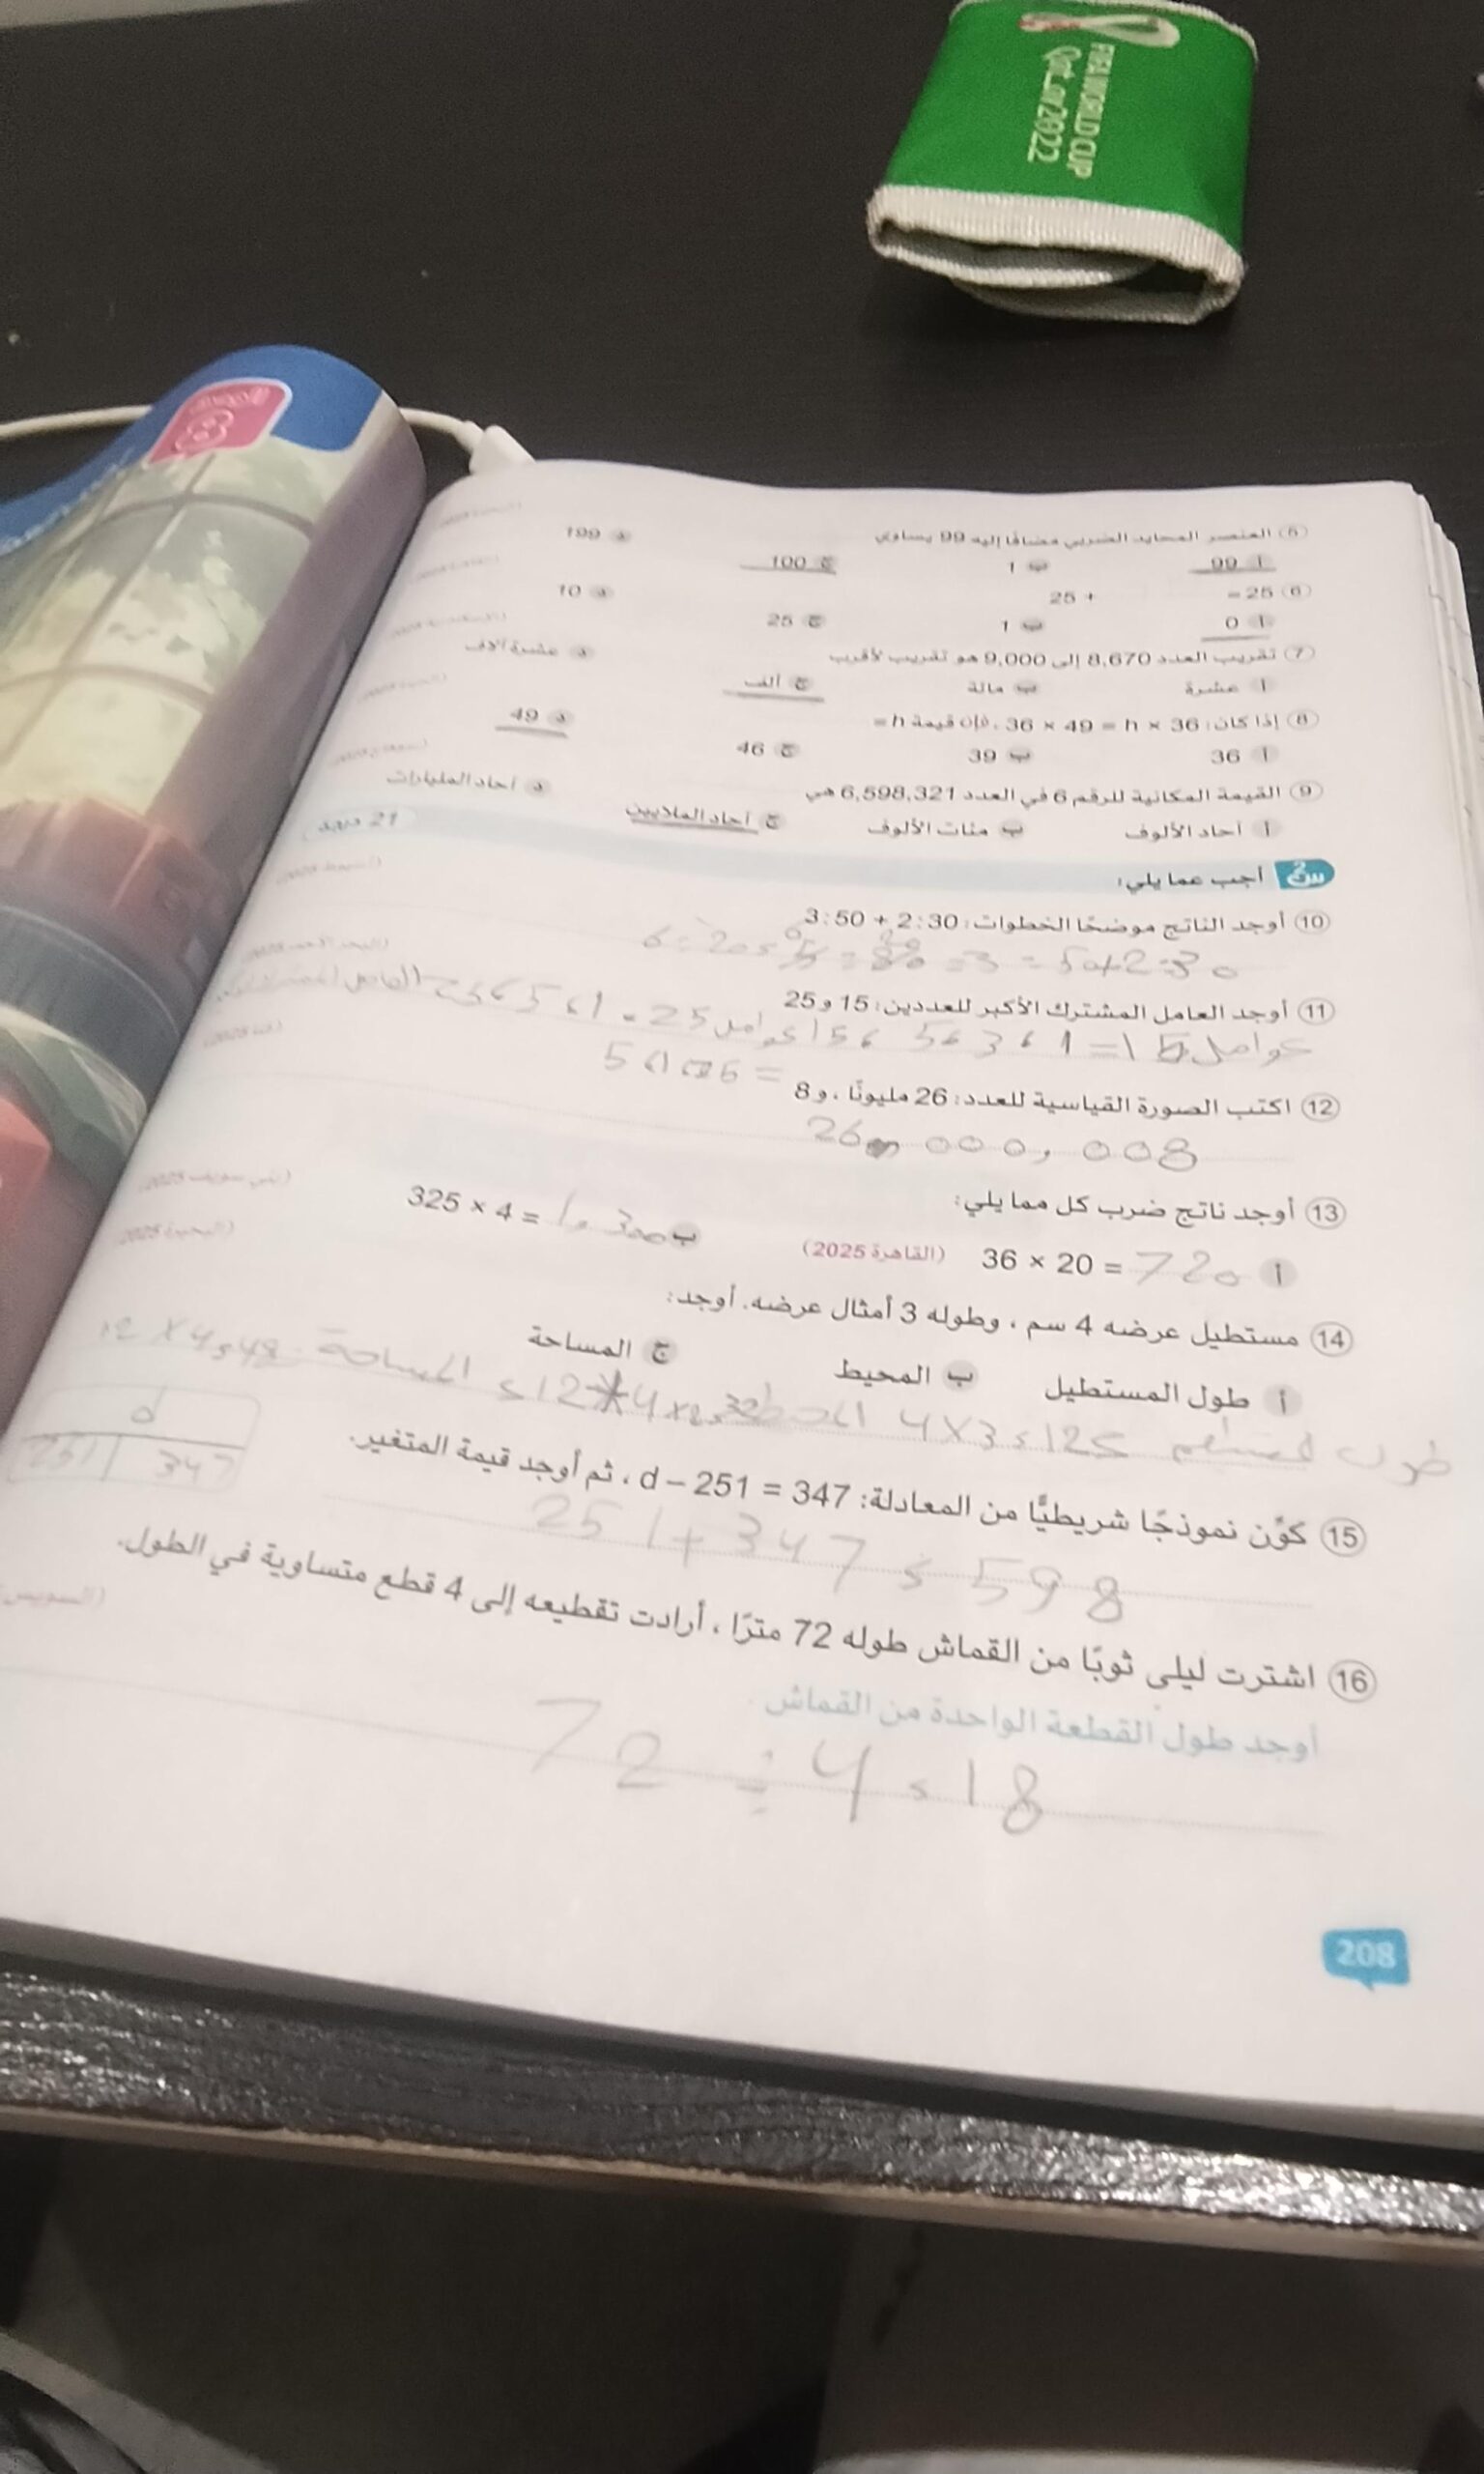 FIFA WORLD CUP
Qatar2022
5 العنصر المحايد الضربي مضافًا إليه 99 يساوي
أ 99 ب 1 ج 100 د 199
6 25 = 25 +
أ 0 ب 1 ج 25 د 10
7 تقريب العدد 8,670 إلى 9,000 هو تقريب لأقرب
أ عشرة ب مائة ج ألف د عشرة آلاف
8 إذا كان: 36 × 49 = h × 36 ، فإن قيمة h =
أ 36 ب 39 ج 46 د 49
9 القيمة المكانية للرقم 6 في العدد 6,598,321 هي
أ آحاد الألوف ب مئات الألوف ج آحاد الملايين د آحاد المليارات
س2 أجب عما يلي: 21 درجة
10 أوجد الناتج موضحًا الخطوات: 2:30 + 3:50
11 أوجد العامل المشترك الأكبر للعددين: 15 و 25
عوامل 15 = 1 ، 3 ، 5 ، 15 عوامل 25 = 1 ، 5 ، 25
12 اكتب الصورة القياسية للعدد: 26 مليونًا ، و 8
26,000,008
13 أوجد ناتج ضرب كل مما يلي: (بني سويف 2025)
أ 36 × 20 = 720 (القاهرة 2025) ب 325 × 4 = 1,300 (البحيرة 2025)
14 مستطيل عرضه 4 سم ، وطوله 3 أمثال عرضه. أوجد:
أ طول المستطيل ب المحيط ج المساحة
طول المستطيل 4 × 3 = 12 المساحة 12 × 4 = 48
15 كوِّن نموذجًا شريطيًّا من المعادلة: d – 251 = 347 ، ثم أوجد قيمة المتغير.
d
251 347
251 + 347 = 598
16 اشترت ليلى ثوبًا من القماش طوله 72 مترًا ، أرادت تقطيعه إلى 4 قطع متساوية في الطول. (السويس
أوجد طول القطعة الواحدة من القماش
72 ÷ 4 = 18
208